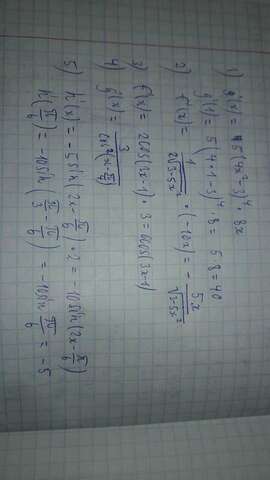 1) g'(x) = 5(4x²-3)⁴ · 8x
g'(1) = 5(4·1-3)⁴ · 8 = 5·8 = 40
2) f'(x) = 1/(2√(3-5x²)) · (-10x) = - 5x/√(3-5x²)
3) f'(x) = 2cos(3x-1) · 3 = 6cos(3x-1)
4) g'(x) = 3/(cos²(x-π/4))
5) h'(x) = -5sin(2x-π/6) · 2 = -10sin(2x-π/6)
h'(π/6) = -10sin(π/3-π/6) = -10sin π/6 = -5